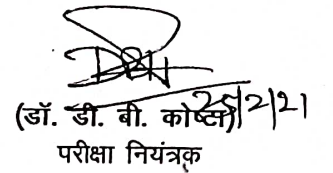 25/2/21
(डॉ. डी. बी. कोष्टा)
परीक्षा नियंत्रक